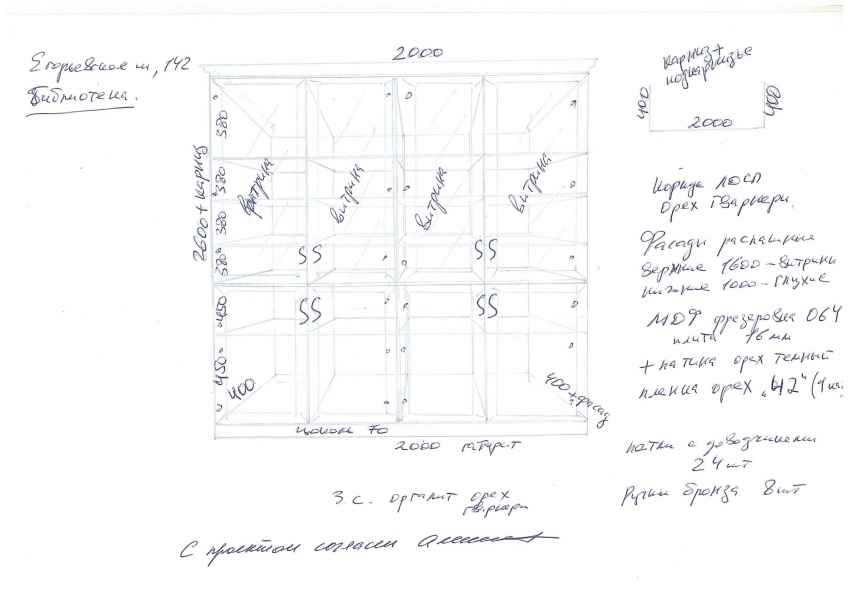 Егорьевское ш, 142
Библиотека.
2000
карниз+
подкарнизье
400
2000
400
2600+карниз
380
380
380
380
450
450
витрина
витрина
витрина
витрина
SS
SS
SS
SS
400
400+фасад
цоколь 70
2000 габарит
ЛДСП
орех Гварнери.
Фасады распашные
верхние 1600 – витрины
нижние 1000 – глухие
МДФ фрезеровка 064
плита 16 мм
+ патина орех темный
пленка орех „42“
петли с доводчиками
24 шт
Ручки бронза 8 шт
З.с. оргалит орех
гварнери
С проектом согласен